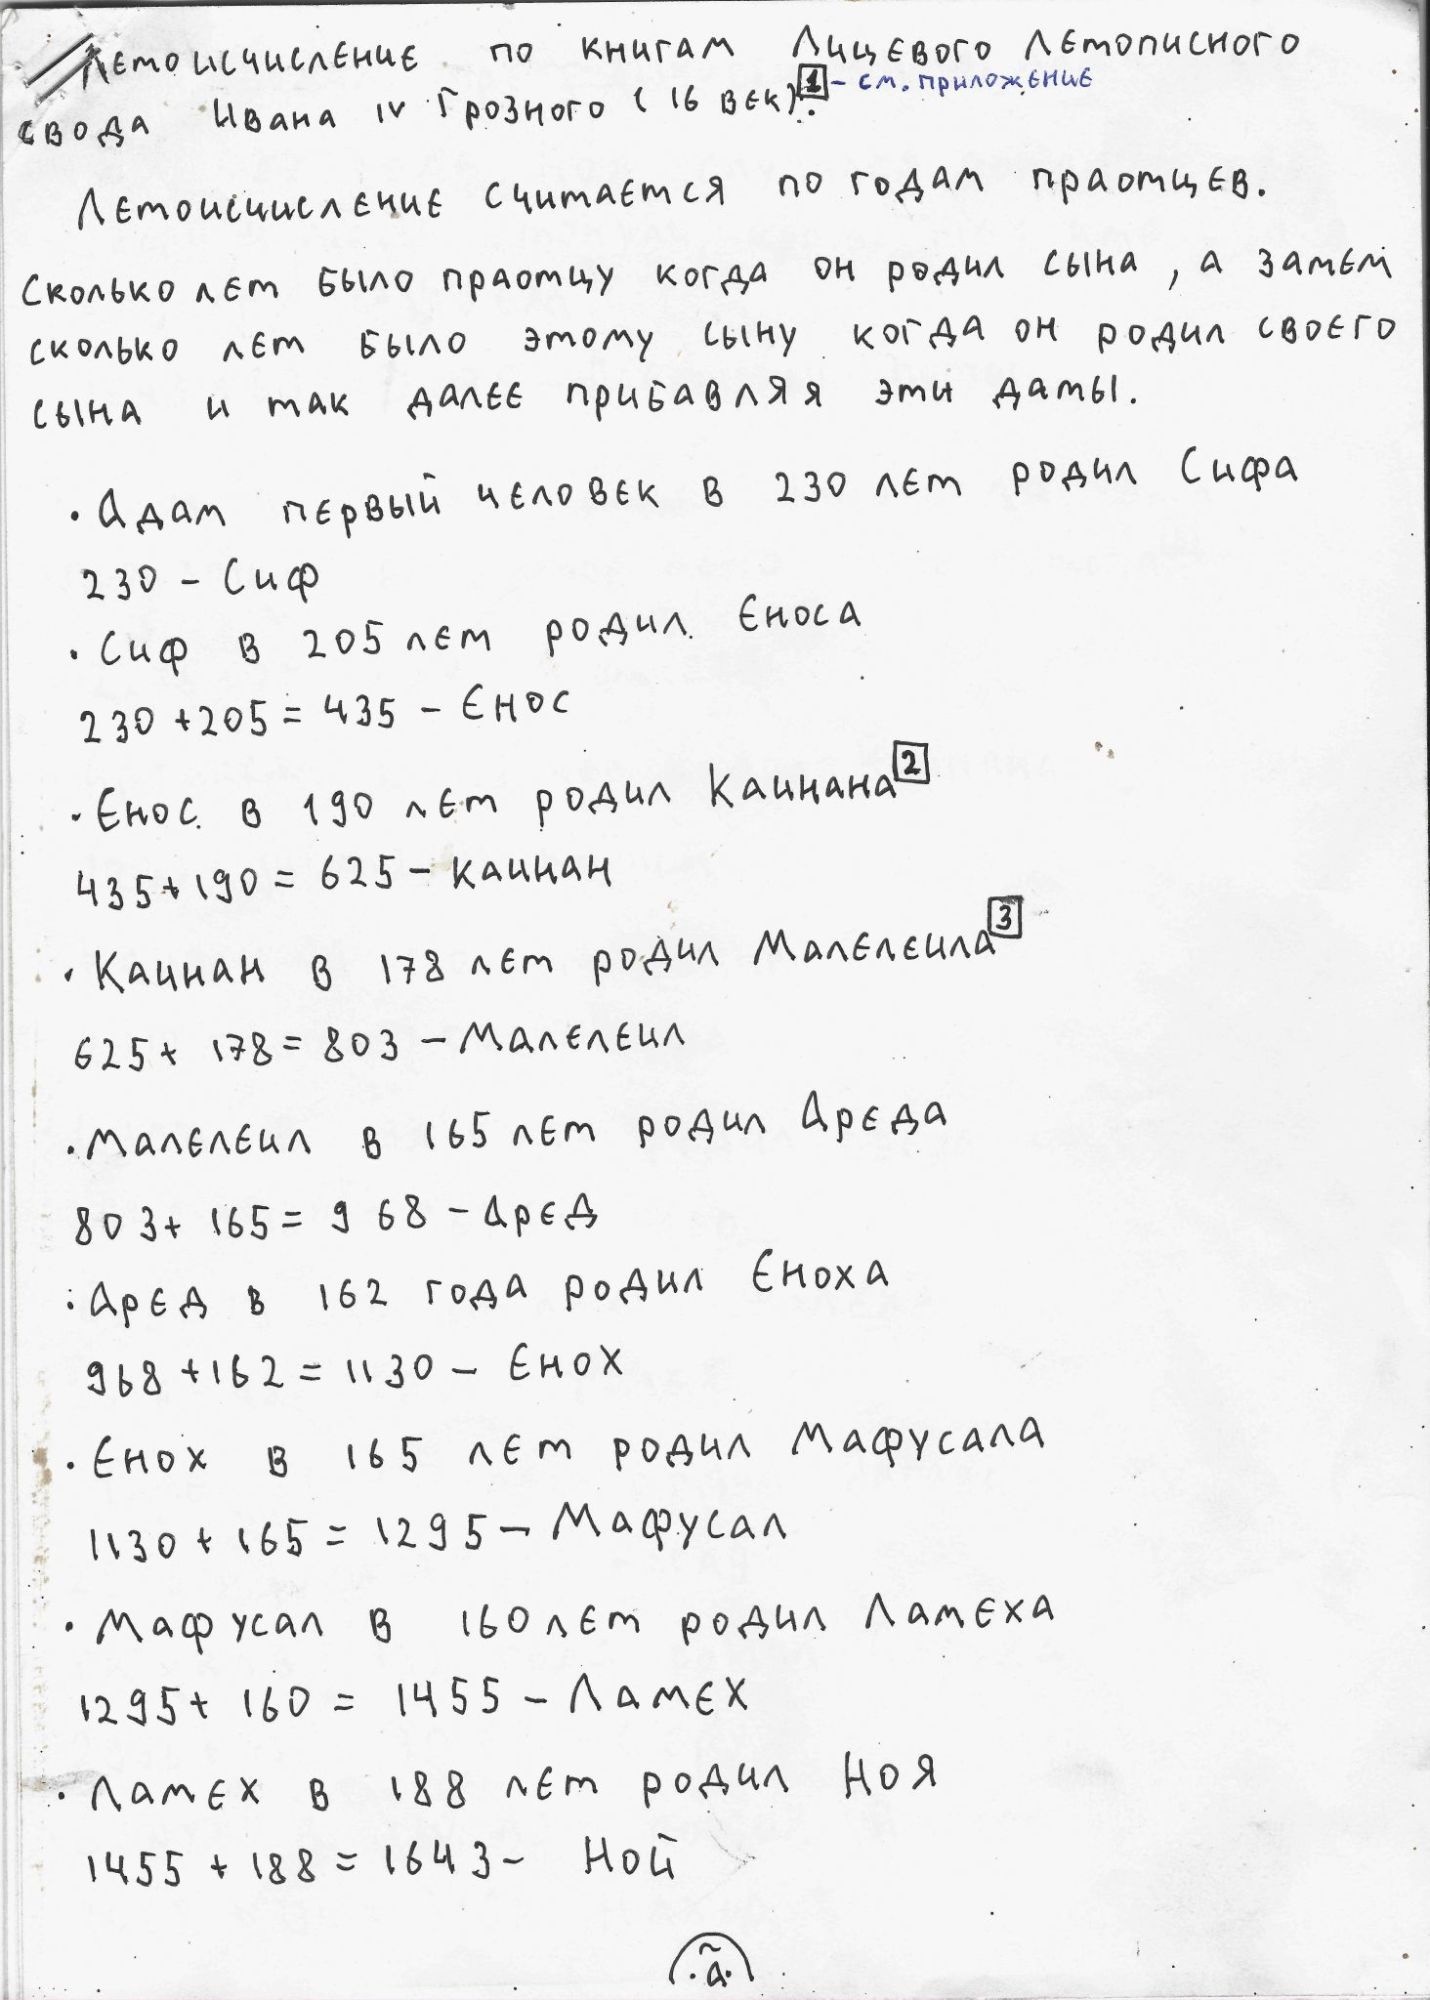 Летоисчисление по книгам Лицевого летописного
свода Ивана IV Грозного (16 век)[1]: - см. приложение
Летоисчисление считается по годам праотцев.
Сколько лет было праотцу когда он родил сына, а затем
сколько лет было этому сыну когда он родил своего
сына и так далее прибавляя эти даты.
• Адам первый человек в 230 лет родил Сифа
230 - Сиф
• Сиф в 205 лет родил Еноса
230 + 205 = 435 - Енос
• Енос в 190 лет родил Каинана[2]
435 + 190 = 625 - Каинан
• Каинан в 178 лет родил Малелеила[3]
625 + 178 = 803 - Малелеил
• Малелеил в 165 лет родил Ареда
803 + 165 = 968 - Аред
• Аред в 162 года родил Еноха
968 + 162 = 1130 - Енох
• Енох в 165 лет родил Мафусала
1130 + 165 = 1295 - Мафусал
• Мафусал в 160 лет родил Ламеха
1295 + 160 = 1455 - Ламех
• Ламех в 188 лет родил Ноя
1455 + 188 = 1643 - Ной
·а҃·